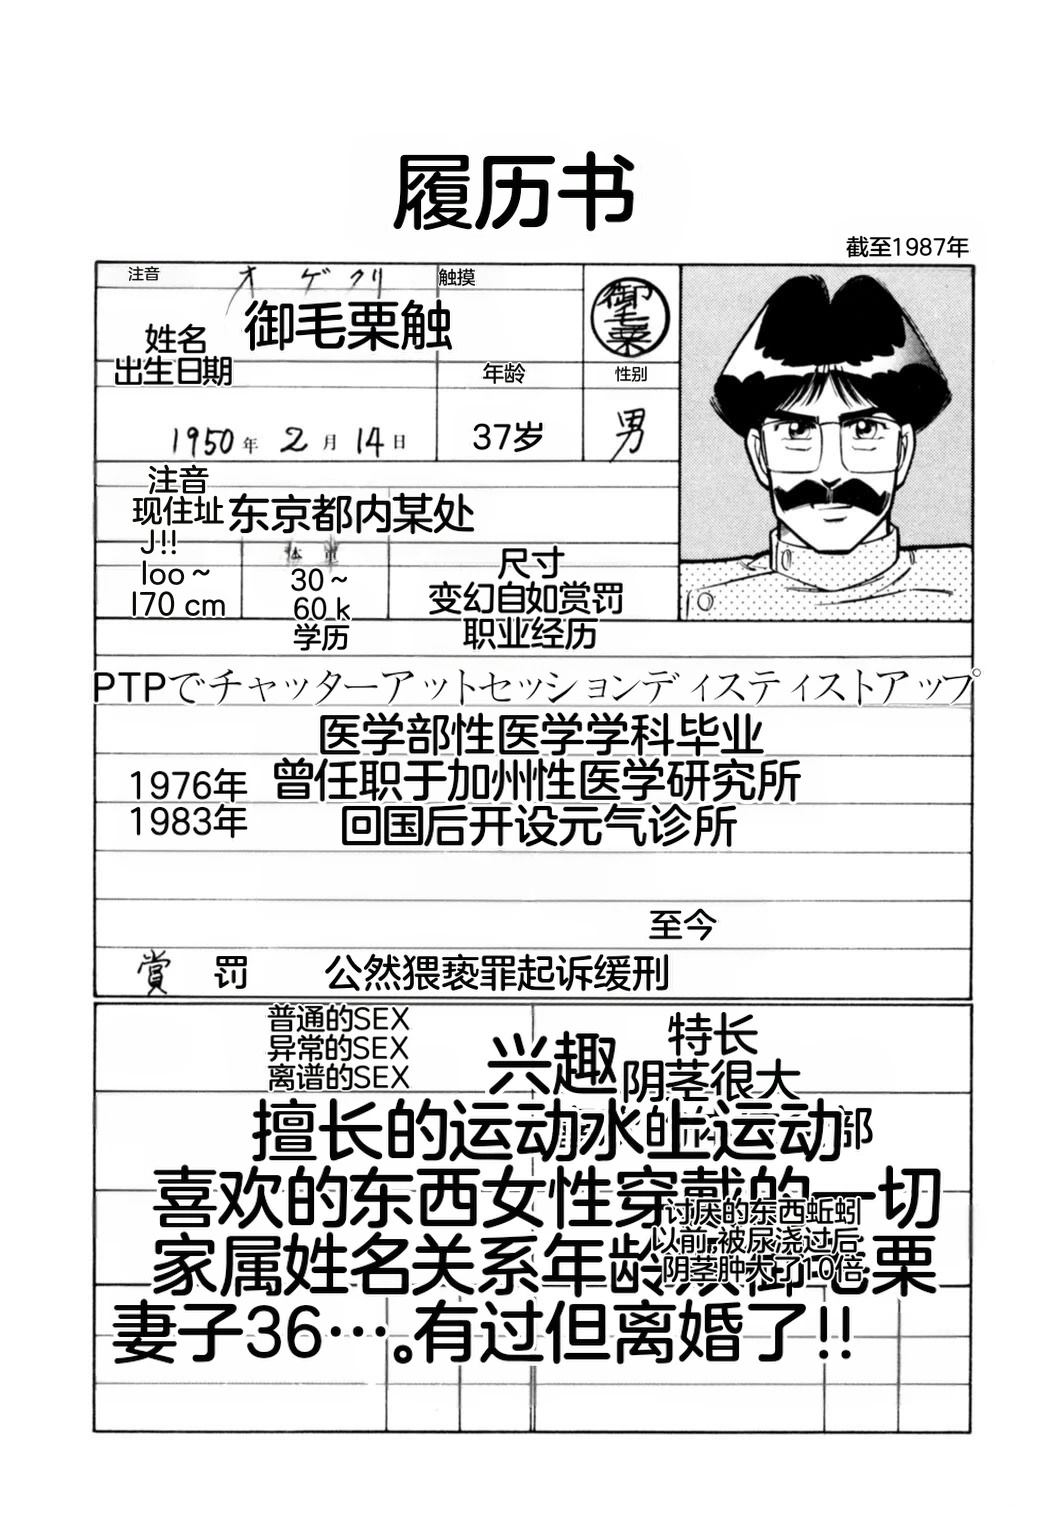 履历书
截至1987年
注音
オゲクリ
触摸
姓名
御毛栗触
御毛栗
出生日期
年龄
性别
1950年2月14日
37岁
男
注音
现住址
东京都内某处
J!!
体重
loo~
170 cm
30~
60 k
尺寸
变幻自如赏罚
学历
职业经历
PTPでチャッターアットセッションディスティストアップ。
医学部性医学学科毕业
1976年
曾任职于加州性医学研究所
1983年
回国后开设元气诊所
至今
賞罚
公然猥亵罪起诉缓刑
普通的SEX
异常的SEX
离谱的SEX
兴趣
特长
阴茎很大
擅长的运动水上运动
部
喜欢的东西女性穿戴的一切
讨厌的东西蚯蚓
以前,被尿浇过后,
阴茎肿大了10倍
家属姓名关系年龄
御毛栗
妻子36…。有过但离婚了!!